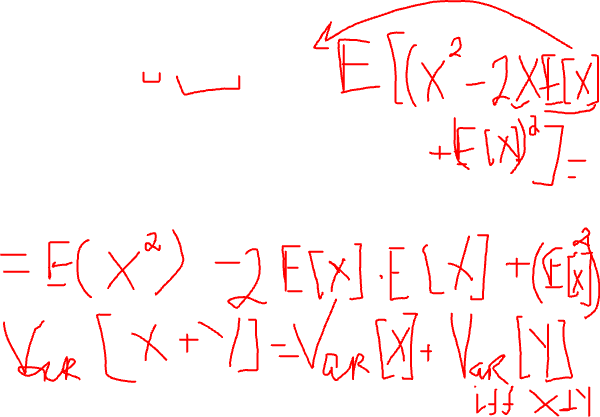 E[(X² - 2XE[X]
+(E[X])²] =
= E(X²) - 2E[X]·E[X] + (E[X]²)
Var[X+Y] = Var[X] + Var[Y]
iff X⊥Y